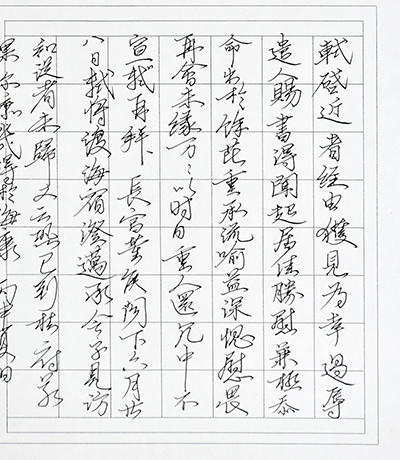 軾啓近者經由獲見為幸過辱
遣人賜書得聞起居佳勝慰兼極忝
命出於餘芘重承流喻益深愧畏
再會未緣萬萬以時自重人還冗中不
宣軾再拜 長官董侯閣下六月廿
八日軾將渡海宿澄邁承令子見訪
知從者未歸又云恐已到桂府若
果尔庶幾得於海康